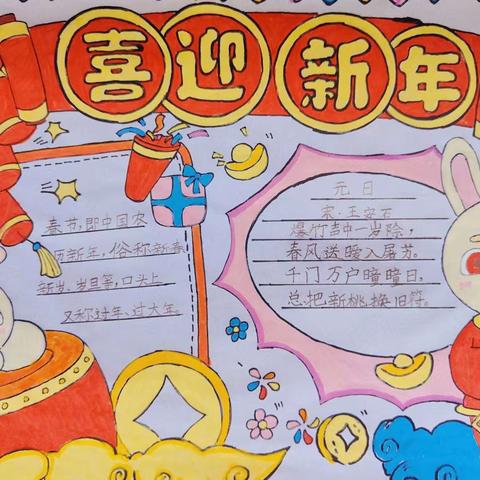 喜迎新年
春节,即中国农
历新年,俗称新春
新岁、岁旦等,口头上
又称过年、过大年。
元日
宋·王安石
爆竹声中一岁除,
春风送暖入屠苏。
千门万户曈曈日,
总把新桃换旧符。